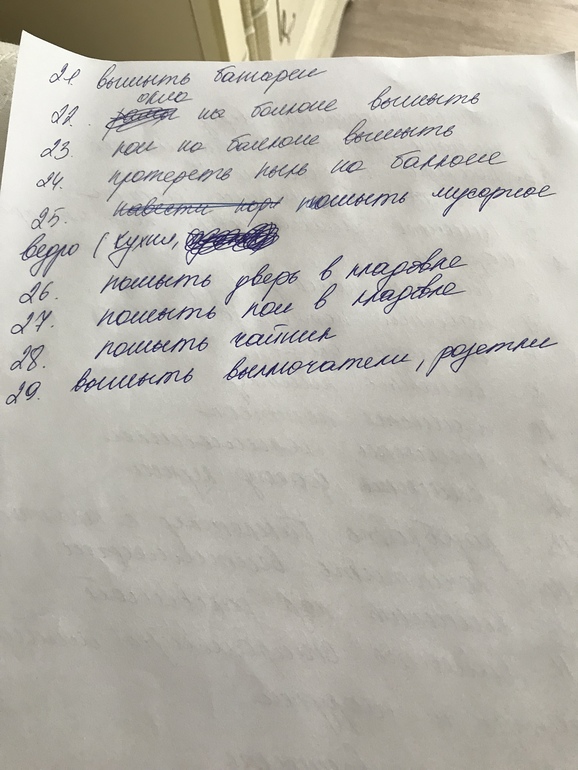 21. вымыть батареи
22. окна на балконе вымыть
23. пол на балконе вымыть
24. протереть пыль на балконе
25. навести пор помыть мусорное
ведро (кухня,
26. помыть дверь в кладовке
27. помыть пол в кладовке
28. помыть чайник
29. вымыть выключатели, розетки